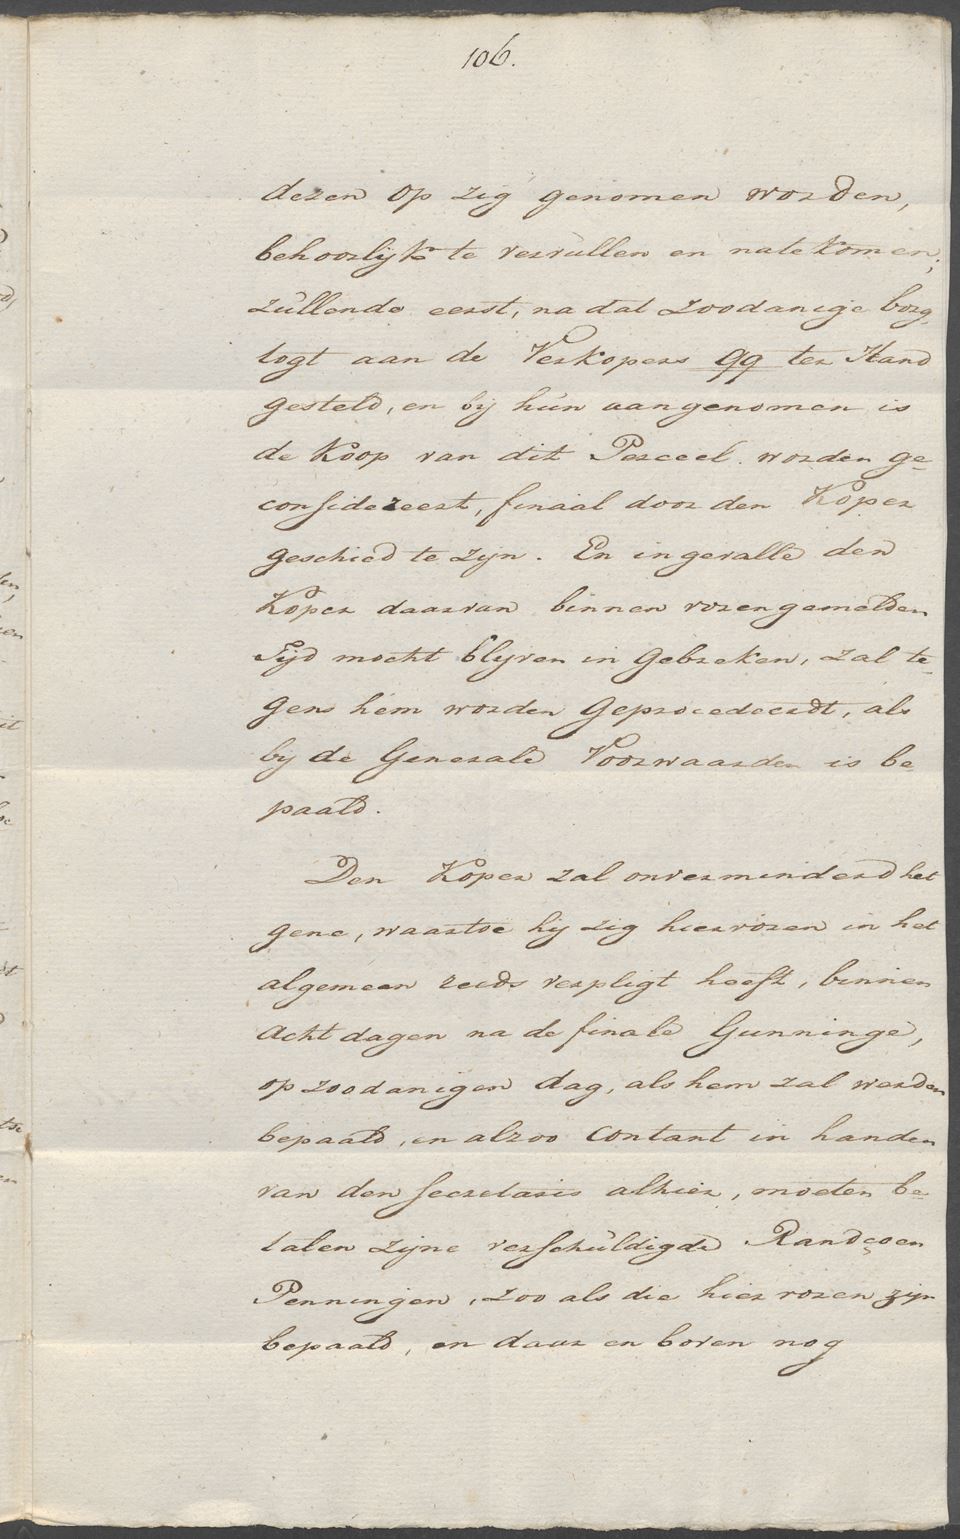 106.
dezen op zig genomen worden,
behoorlijk te vervullen en nate komen;
zullende eerst, na dat zoodanige borg-
togt aan de Verkopers qq ter Hand
gesteld, en bij hun aangenomen is
de Koop van dit Perceel worden ge-
considereert, finaal door den Koper
geschied te zijn. En ingevalle den
Koper daarvan binnen vorengemelden
Tijd mocht blijven in Gebreken, zal te-
gens hem worden Geprocedeerdt, als
bij de Generale Voorwaarden is be-
paald.
Den Koper zal onverminderd het
gene, waartoe hij zig hiervoren in het
algemeen reeds verpligt heeft, binnen
Acht dagen na de finale Gunninge,
op zoodanigen dag, als hem zal werden
bepaald, en alzoo Contant in handen
van den Secretaris alhier, moeten be-
talen zijne verschuldigde Randçoen
Penningen, zoo als die hier voren zijn
bepaald, en daar en boven nog